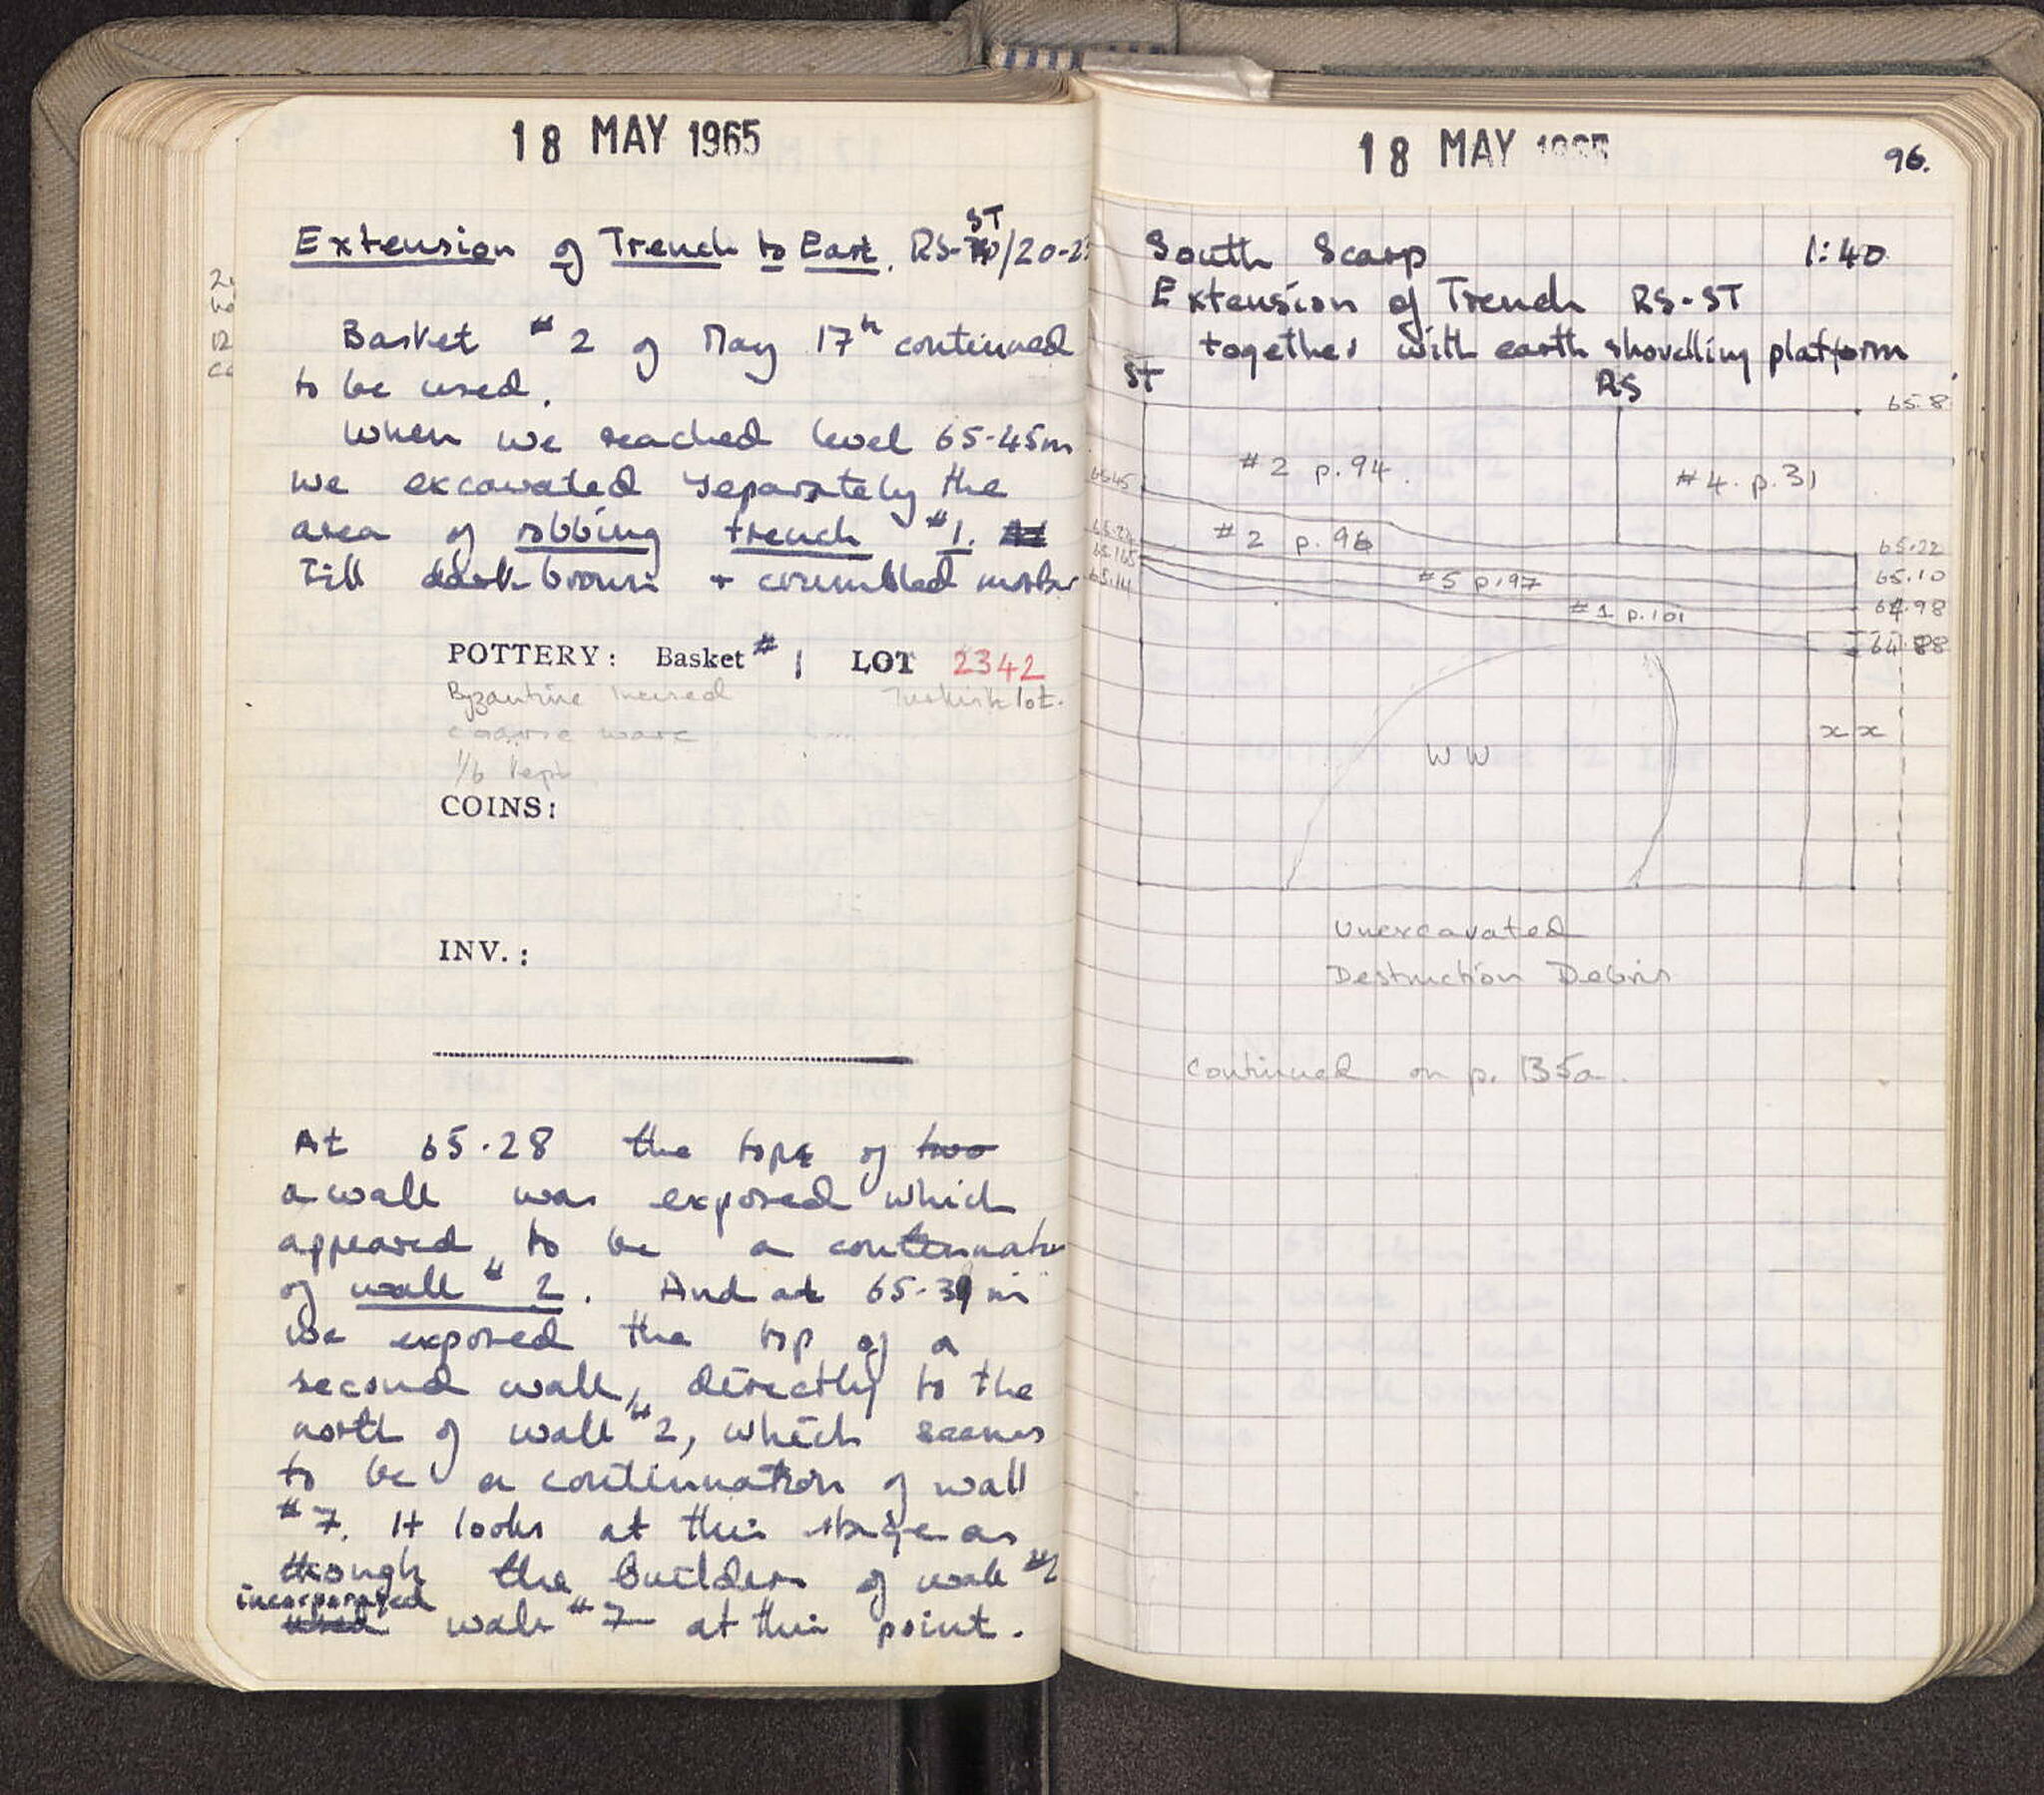 18 MAY 1965
Extension of Trench to East. RS-ST/20-2
Basket #2 of May 17th continued
to be used.
When we reached level 65.45m
we excavated separately the
area of robbing trench #1.
Till dark brown + crumbled mortar
POTTERY: Basket # 1 LOT 2342
Byzantine Incised Turkish lot.
coarse ware
COINS:
INV.:
At 65.28 the top of two
a wall was exposed which
appeared to be a continuatn
of wall #2. And at 65.39 m
we exposed the top of a
second wall, directly to the
north of wall #2, which seems
to be a continuation of wall
#7. It looks at this stage as
though the builders of wall #2
incorporated
used wall #7 at this point.
18 MAY 1965
96.
South Scarp 1:40
Extension of Trench RS-ST
together with earth shovelling platform
ST RS
65.8
#2 p.94 #4. p.31
65.45
#2 p.96
65.22
65.165
65.14
65.10
#5 p.97
64.98
#1 p.101
64.88
WW
x x
Unexcavated
Destruction Debris
Continued on p. 135a.